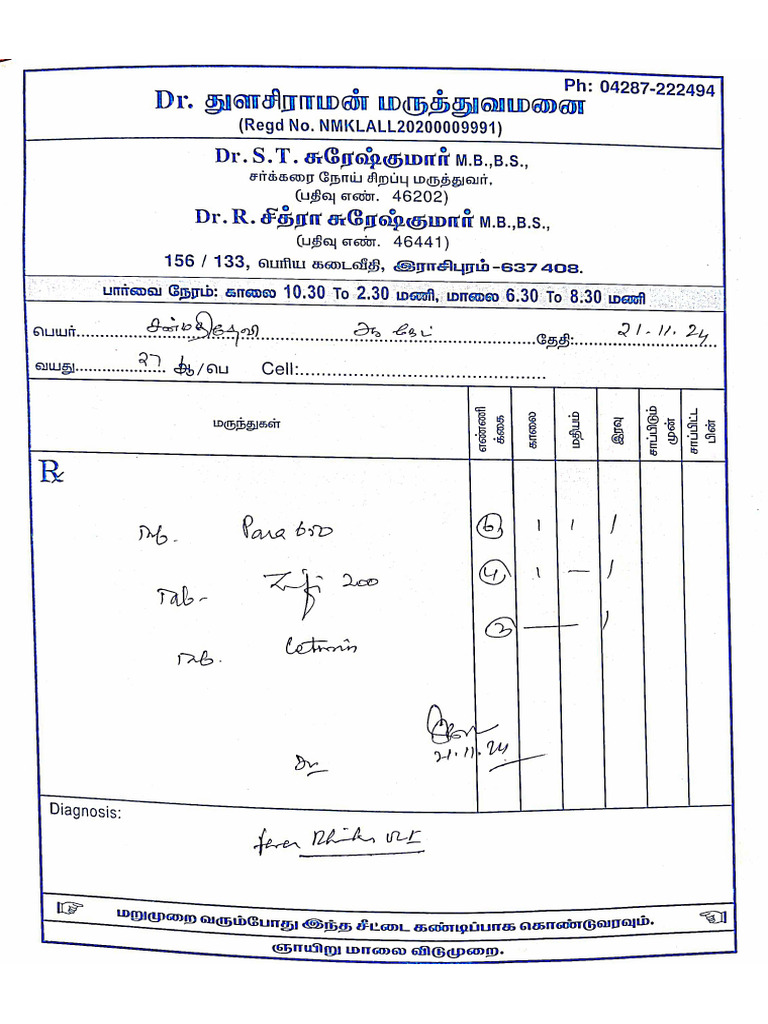 Ph: 04287-222494
Dr. துளசிராமன் மருத்துவமனை
(Regd No. NMKLALL20200009991)
Dr. S.T. சுரேஷ்குமார் M.B.,B.S.,
சர்க்கரை நோய் சிறப்பு மருத்துவர்,
(பதிவு எண். 46202)
Dr. R. சித்ரா சுரேஷ்குமார் M.B.,B.S.,
(பதிவு எண். 46441)
156 / 133, பெரிய கடைவீதி, இராசிபுரம்-637 408.
பார்வை நேரம்: காலை 10.30 To 2.30 மணி, மாலை 6.30 To 8.30 மணி
பெயர்.......... தேதி: 21.11.24
வயது 27 ஆ/பெ Cell:..........
மருந்துகள் எண்ணிக்கை காலை மதியம் இரவு சாப்பிடும் முன் சாப்பிட்ட பின்
Rx
Tab. Para 650 6 1 1 1
Tab- Zifi 200 4 1 — 1
Tab. 3 — 1
21.11.24
Dr
Diagnosis:
fever URI
மறுமுறை வரும்போது இந்த சீட்டை கண்டிப்பாக கொண்டுவரவும்.
ஞாயிறு மாலை விடுமுறை.